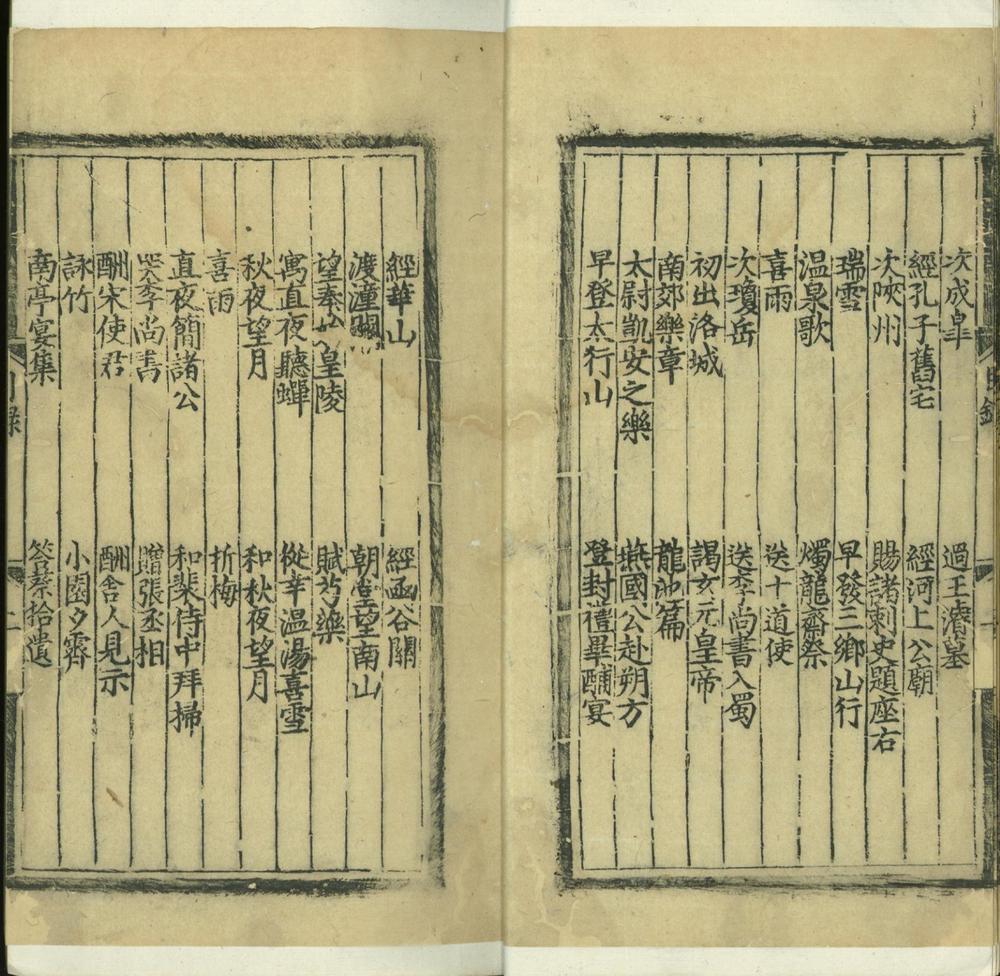 次成臯 過王濬墓
經孔子舊宅 經河上公廟
次陜州 賜諸刺史題座右
瑞雪 早發三鄉山行
温泉歌 燭龍齋祭
喜雨 送十道使
次瓊岳 送李尚書入蜀
初出洛城 謁玄元皇帝
南郊樂章 龍池篇
太尉凱安之樂 燕國公赴朔方
早登太行山 登封禮畢酺宴
目錄
一
經華山 經函谷關
渡潼關 朝堂望南山
望秦始皇陵 賦芍藥
寓直夜聽蟬 從幸温湯喜雪
秋夜望月 和秋夜望月
喜雨 折梅
直夜簡諸公 和裴侍中拜掃
哭李尚書 贈張丞相
酬宋使君 酬舍人見示
詠竹 小園夕霽
南亭宴集 答蔡拾遺
目録
二